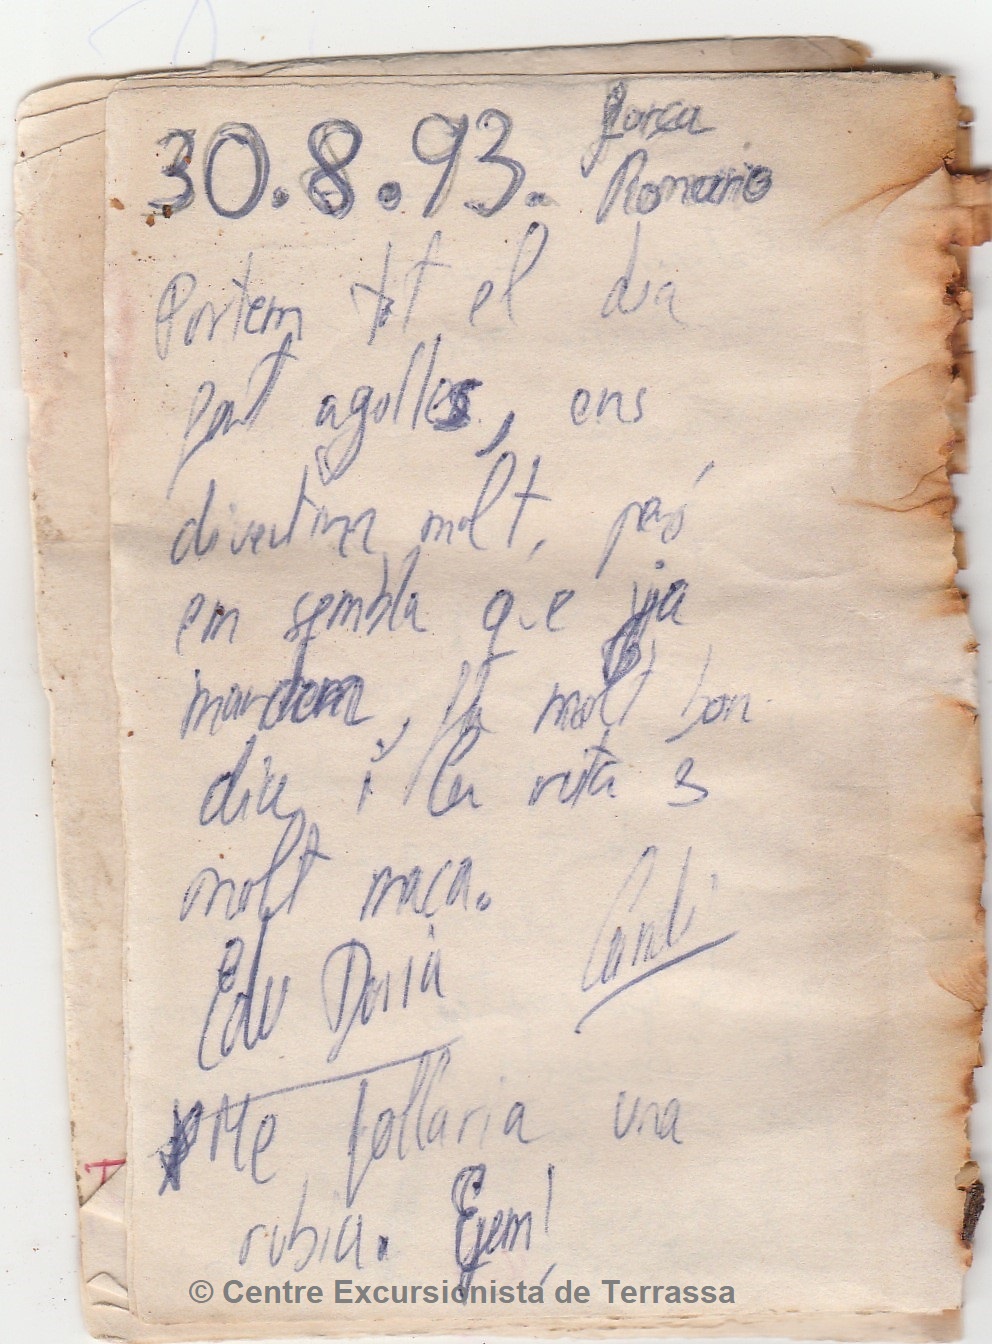 30.8.93. Força
Romario
Portem tot el dia
fent agulles, ens
divertim molt, però
em sembla que ja
marxem, fa molt bon
dia i la ruta s
molt maca.
Edu Doria Candi
Me follaria una
rubia. Ejem!
© Centre Excursionista de Terrassa